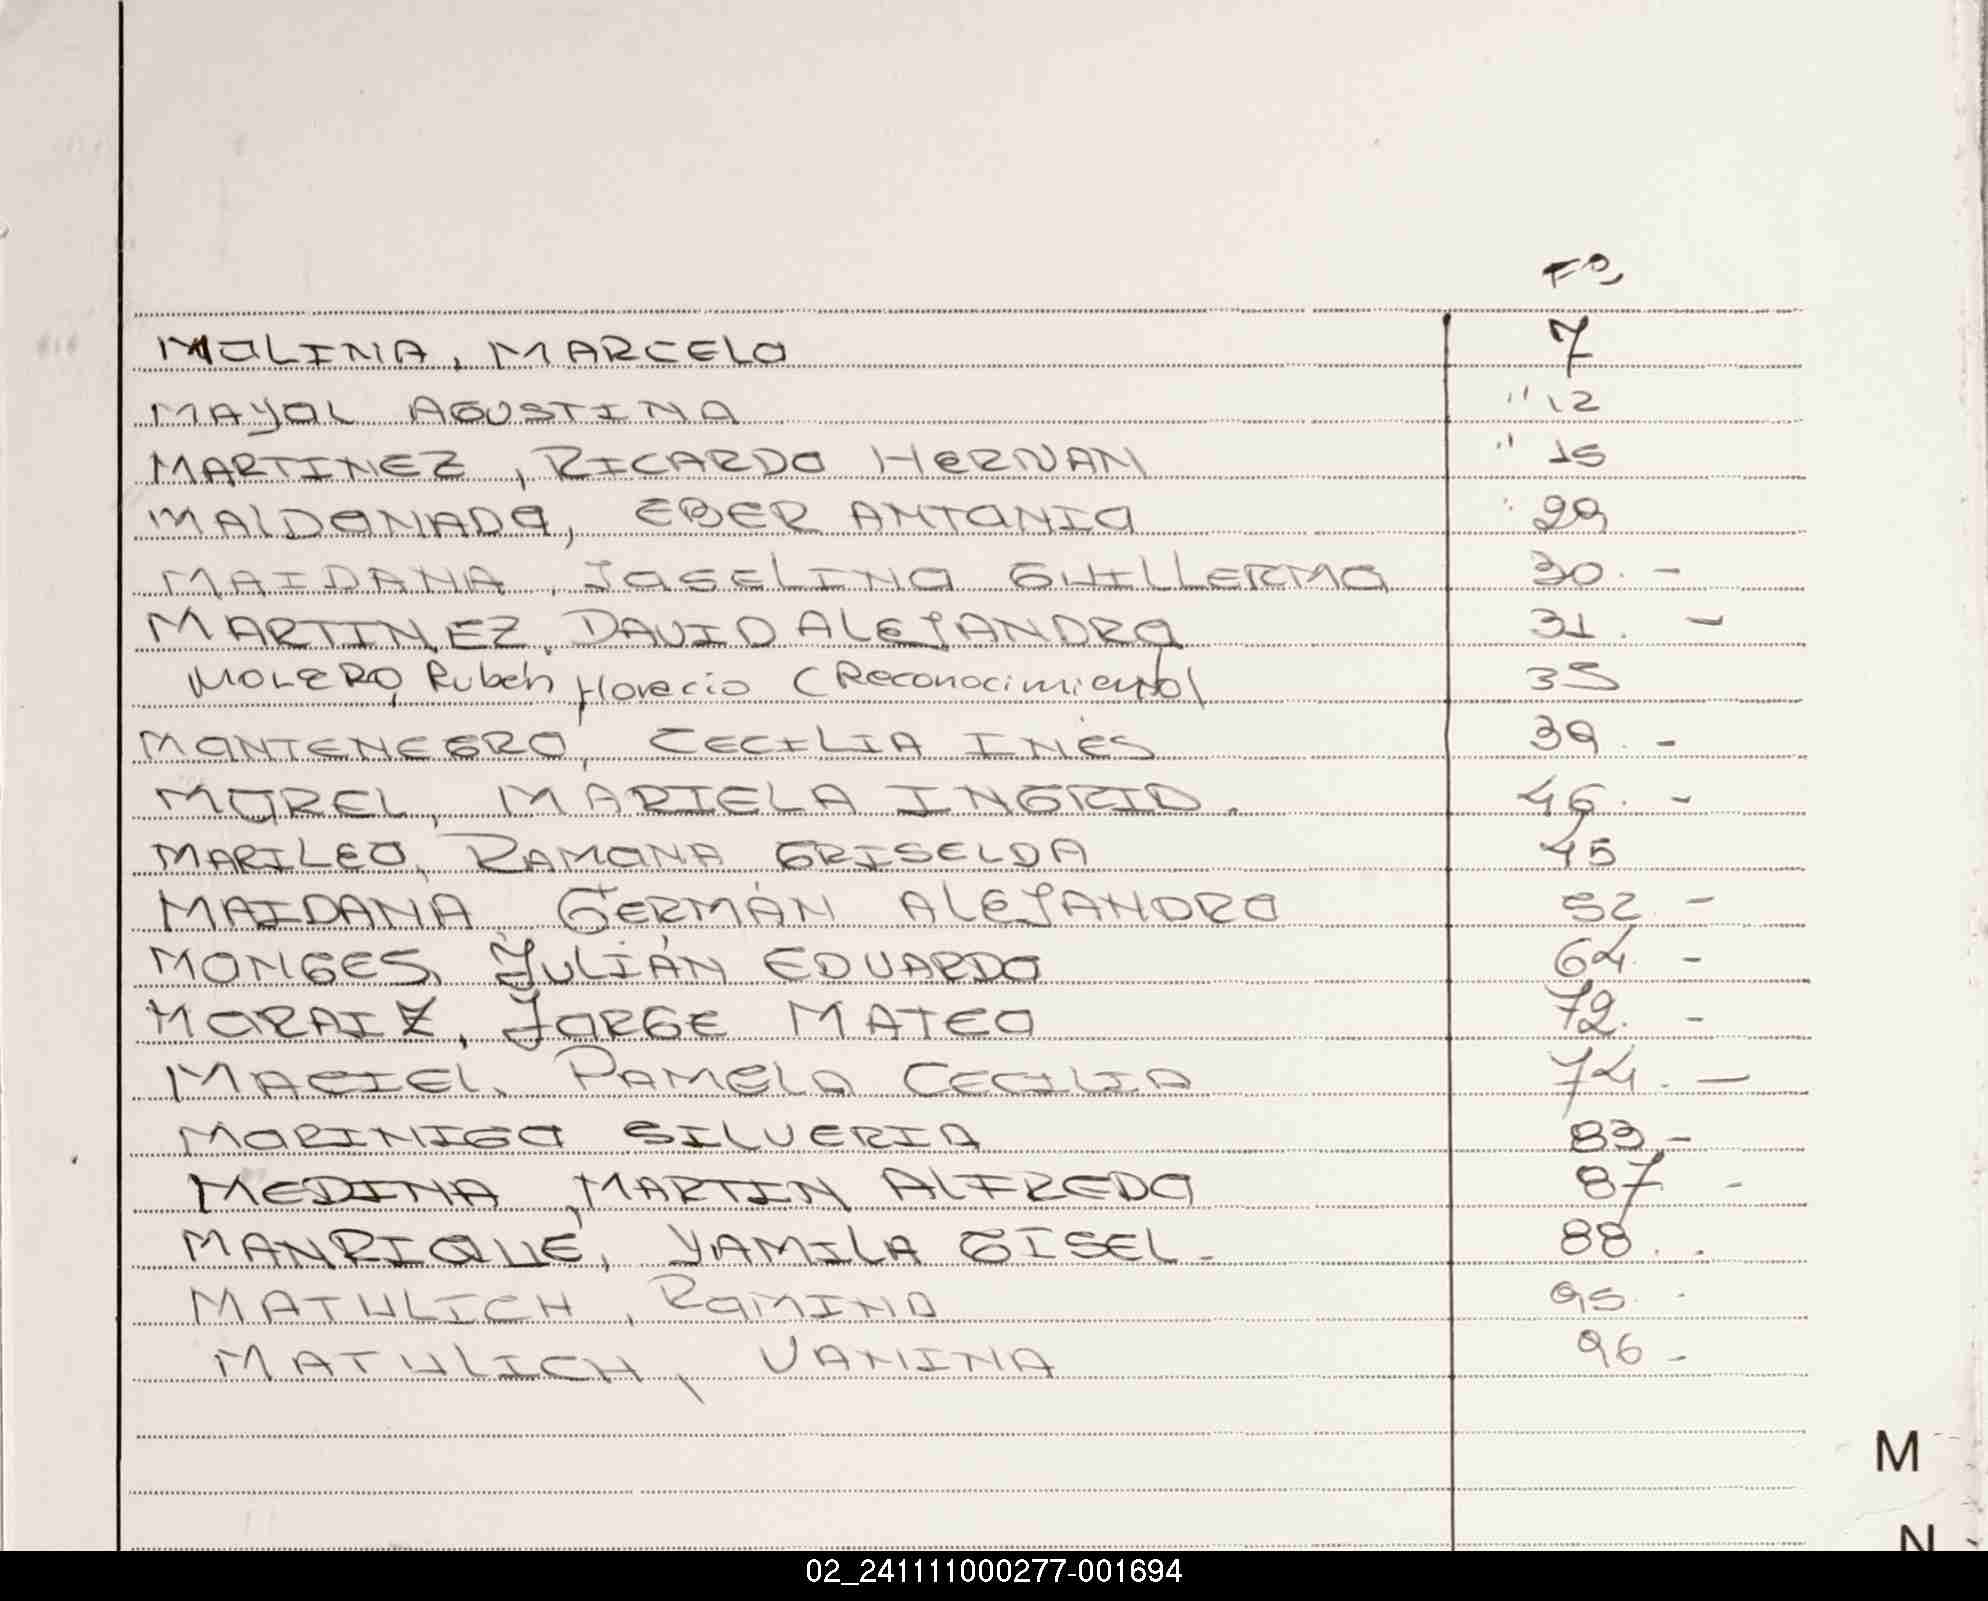 Fº
MOLINA, MARCELO 7
MAYOL AGUSTINA " 12
MARTINEZ, RICARDO HERNAN " 15
MALDONADO, EBER ANTONIO " 29
MAIDANA, JOSELINO GUILLERMO 30. -
MARTINEZ, DAVID ALEJANDRO 31. -
MOLERO, Rubén Horacio (Reconocimiento) 35
MONTENEGRO, CECILIA INÉS 39. -
MOREL, MARIELA INGRID. 46. -
MARILEO, RAMONA GRISELDA 45
MAIDANA GERMÁN ALEJANDRO 52. -
MONGES, JULIÁN EDUARDO 64. -
MORAIZ, JORGE MATEO 72. -
MACIEL, PAMELA CECILIA 74. -
MORINIGO SILVERIA 83. -
MEDINA, MARTIN ALFREDO 87. -
MANRIQUE, YAMILA GISEL- 88. -
MATULICH, ROMINA 95. -
MATULICH, VANINA 96 -
M
N
02_241111000277-001694